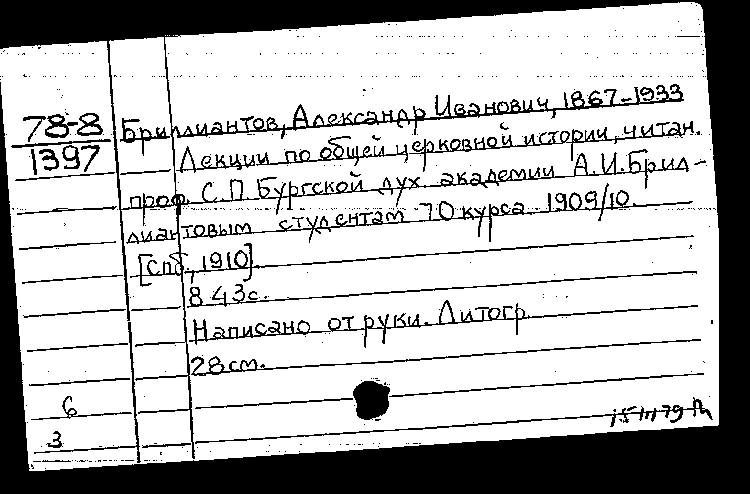 78-8
1397
Бриллиантов, Александр Иванович, 1867-1933
Лекции по общей церковной истории, читан.
проф. С.П.Бургской дух. академии А.И.Брил-
лиантовым студентам 70 курса 1909/10.
[Спб., 1910].
843с.
Написано от руки. Литогр.
28см.
6
3